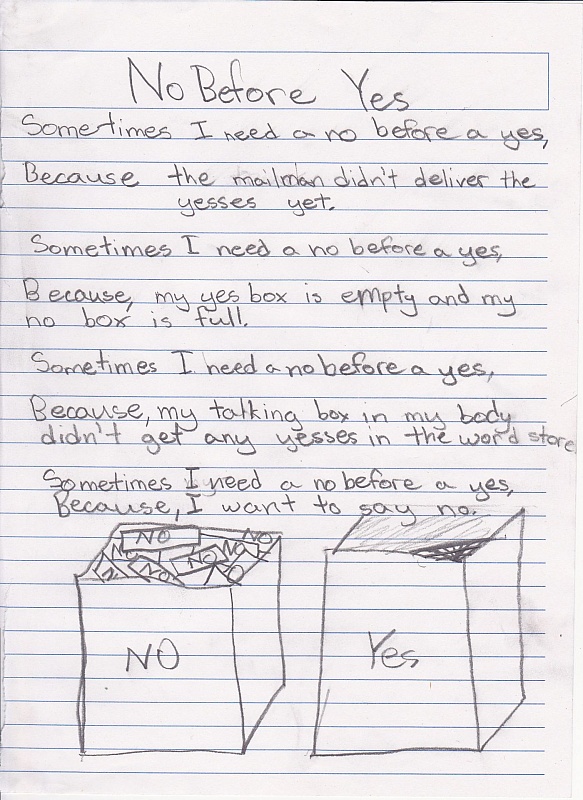 No Before Yes
Sometimes I need a no before a yes,
Because the mailman didn't deliver the
yesses yet.
Sometimes I need a no before a yes,
Because, my yes box is empty and my
no box is full.
Sometimes I need a no before a yes,
Because, my talking box in my body
didn't get any yesses in the word store
Sometimes I need a no before a yes,
Because, I want to say no.
NO NO
NO NO NO
NO NO NO
NO Yes